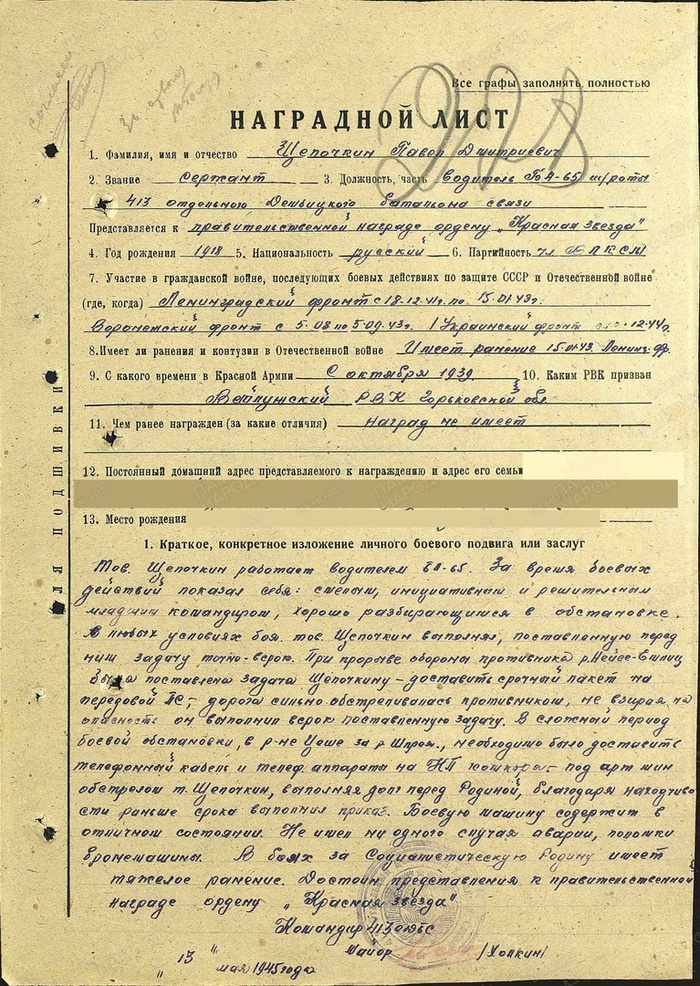 Все графы заполнять полностью
228
НАГРАДНОЙ ЛИСТ
1. Фамилия, имя и отчество Щепочкин Павел Дмитриевич
2. Звание сержант 3. Должность, часть водитель БА-65 ш/роты
413 отдельного Дембицкого батальона связи
Представляется к правительственной награде ордену „Красная звезда"
4. Год рождения 1918 5. Национальность русский 6. Партийность чл. ВЛКСМ
7. Участие в гражданской войне, последующих боевых действиях по защите СССР и Отечественной войне
(где, когда) Ленинградский фронт с 18.12.41г. по 15.01.43г.
Воронежский фронт с 5.08 по 5.09.43г. 1 Украинский фронт 12.44г.
8. Имеет ли ранения и контузии в Отечественной войне Имеет ранение 15.01.43 Ленинг. фр.
9. С какого времени в Красной Армии С октября 1939 10. Каким РВК призван
РВК Горьковской обл.
11. Чем ранее награжден (за какие отличия) наград не имеет
12. Постоянный домашний адрес представляемого к награждению и адрес его семьи
13. Место рождения
ДЛЯ ПОДШИВКИ
1. Краткое, конкретное изложение личного боевого подвига или заслуг
Тов. Щепочкин работает водителем БА-65. За время боевых
действий показал себя: смелым, инициативным и решительным
младшим командиром, хорошо разбирающимся в обстановке.
В любых условиях боя тов. Щепочкин выполнял, поставленную перед
ним задачу точно-всрок. При прорыве обороны противника р. Нейсе
была поставлена задача Щепочкину – доставить срочный пакет на
передовой ПС – дорога сильно обстреливалась противником, не взирая на
опасность он выполнил всрок поставленную задачу. В сложный период
боевой обстановки, в р-не за р. Шпрее, необходимо было доставить
телефонный кабель и телеф. аппараты на НП – под арт мин
обстрелом т. Щепочкин, выполняя долг перед Родиной, благодаря находчиво
сти раньше срока выполнил приказ. Боевую машину содержит в
отличном состоянии. Не имел ни одного случая аварии, поломки
бронемашины. В боях за Социалистическую Родину имеет
тяжелое ранение. Достоин представления к правительственной
награде ордену „Красная звезда"
Командир 413
Майор /Холкин/
„13" мая 1945 года